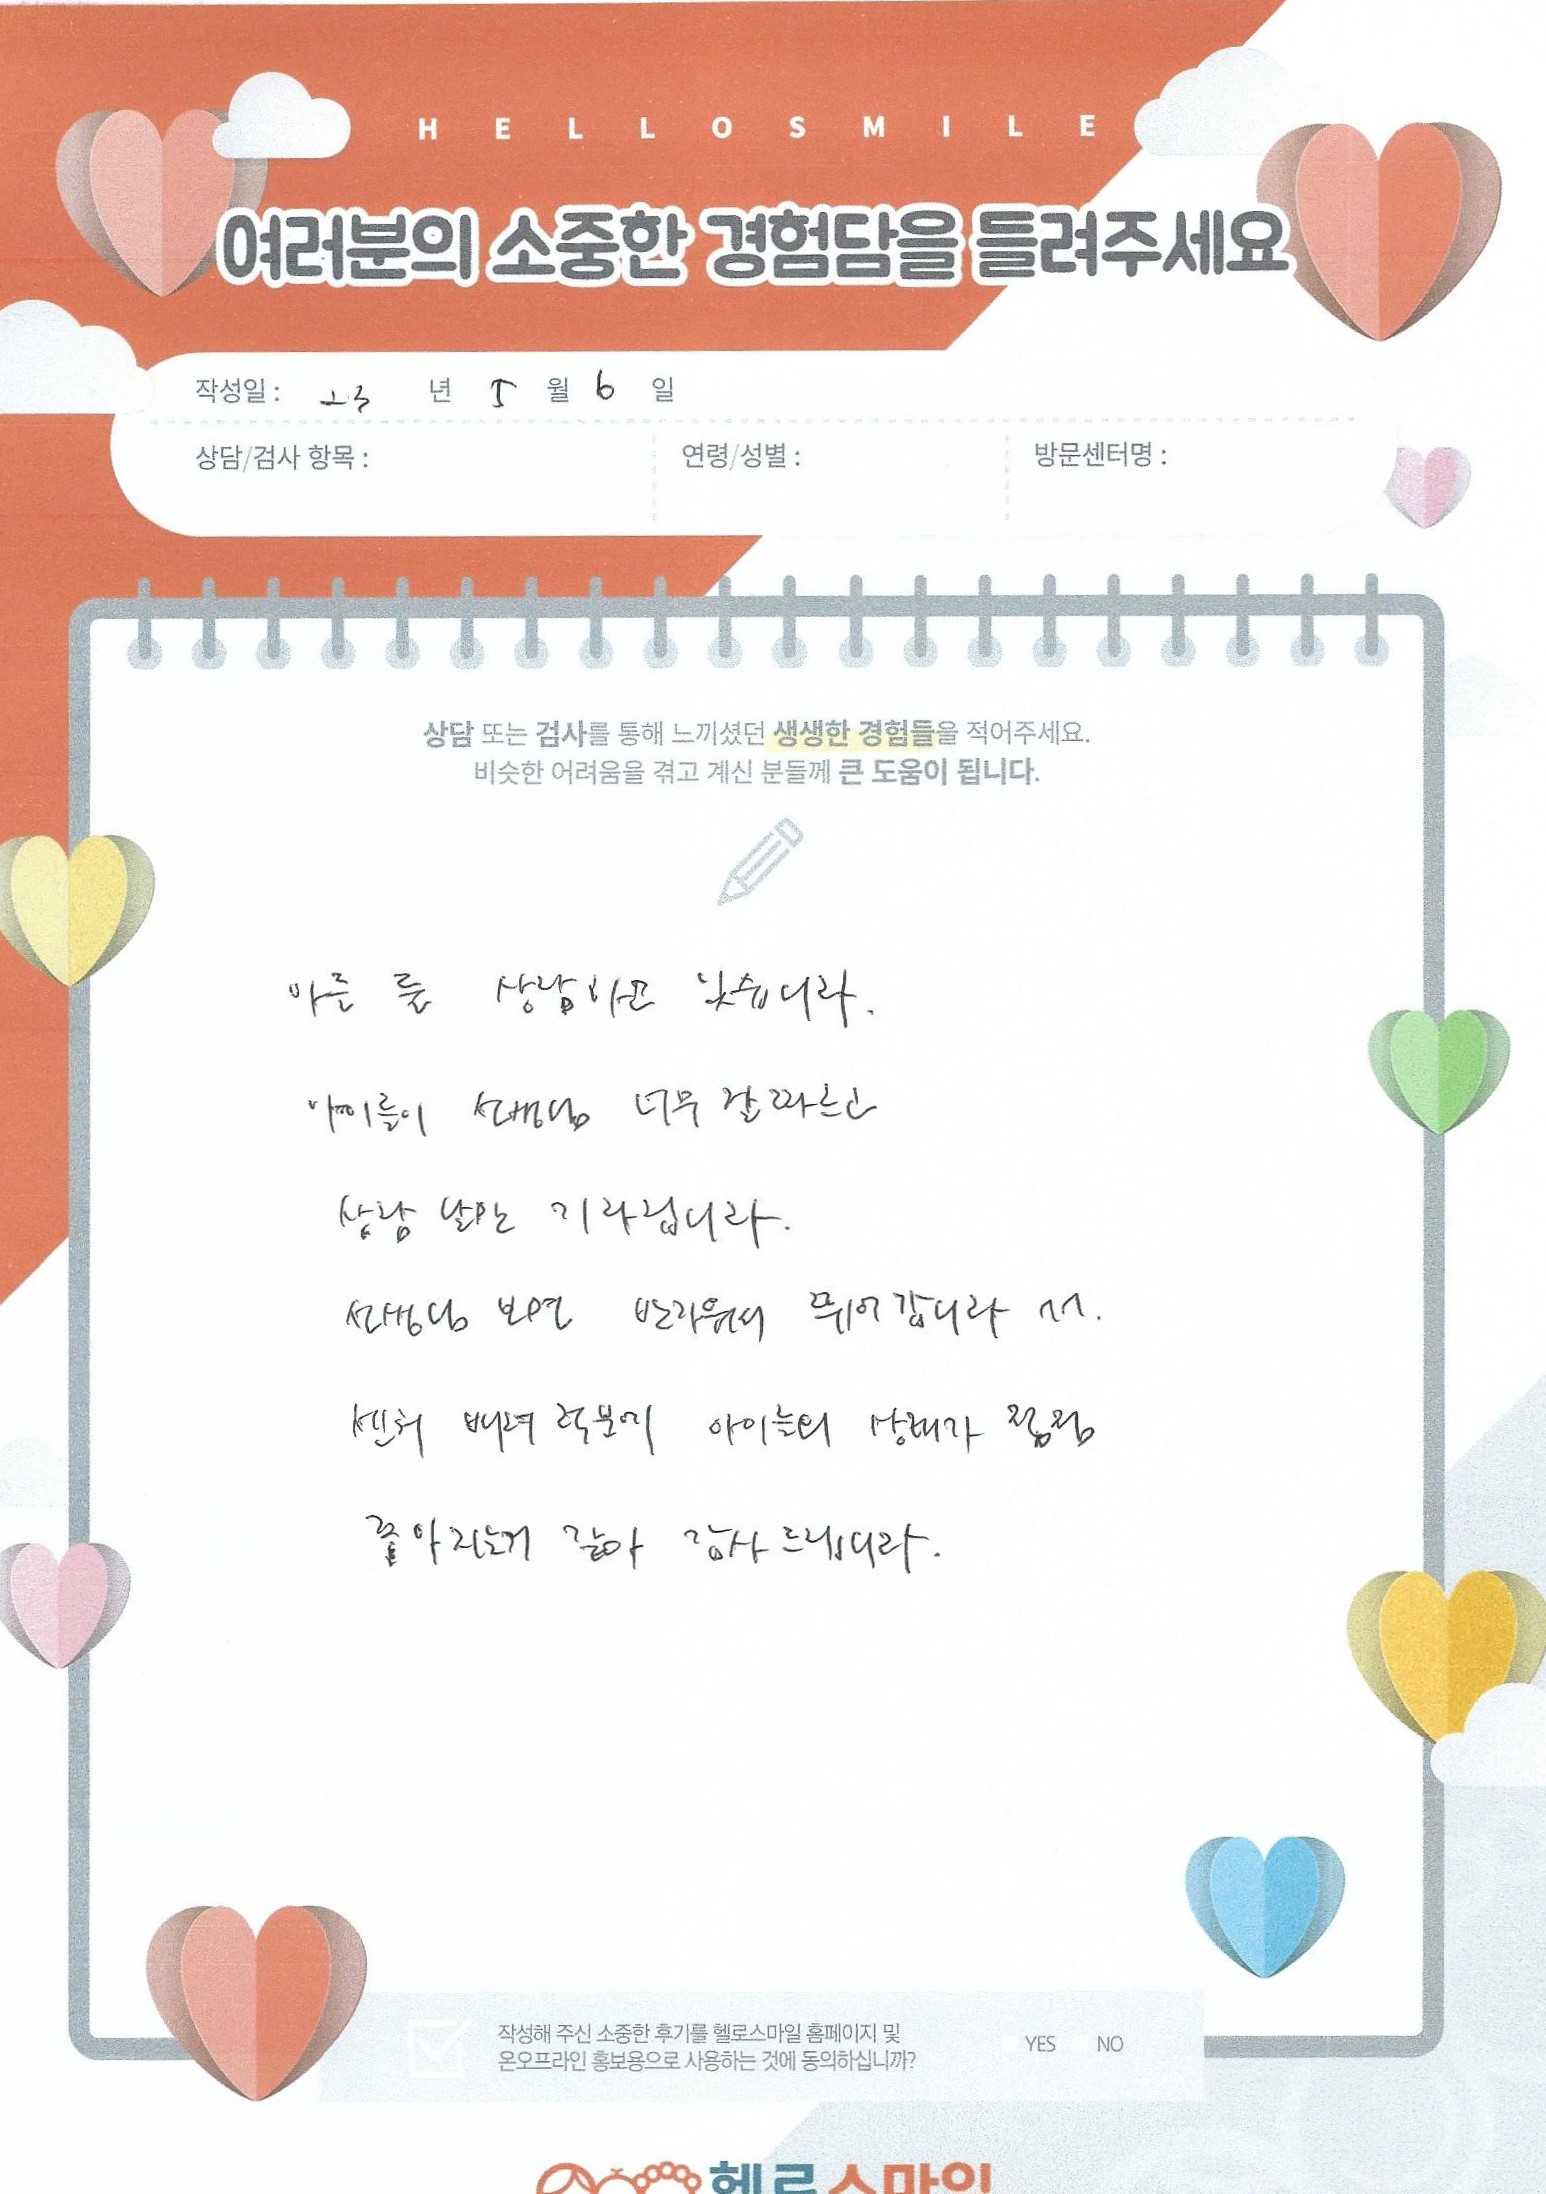 HELLOSMILE
여러분의 소중한 경험담을 들려주세요
작성일 : 23 년 5 월 6 일
상담/검사 항목 : 연령/성별 : 방문센터명 :
상담 또는 검사를 통해 느끼셨던 생생한 경험들을 적어주세요.
비슷한 어려움을 겪고 계신 분들께 큰 도움이 됩니다.
아들 둘 상담하고 있습니다.
아이들이 선생님 너무 잘 따르고
상담 날만 기다립니다.
선생님 보면 반가워서 뛰어갑니다 ^^.
센터 배려 덕분에 아이들의 상태가 점점
좋아지는거 같아 감사드립니다.
작성해 주신 소중한 후기를 헬로스마일 홈페이지 및
온오프라인 홍보용으로 사용하는 것에 동의하십니까? YES NO
헬로스마일